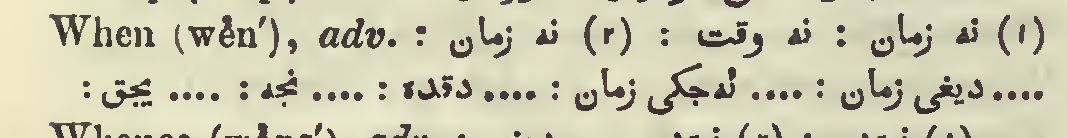 When (wĕn′), adv. : (۱) نه زمان : نه وقت : (۲) نه زمان
.... دیغی زمان : .... لەجکی زمان : .... دقده : .... نجه : .... یجق :